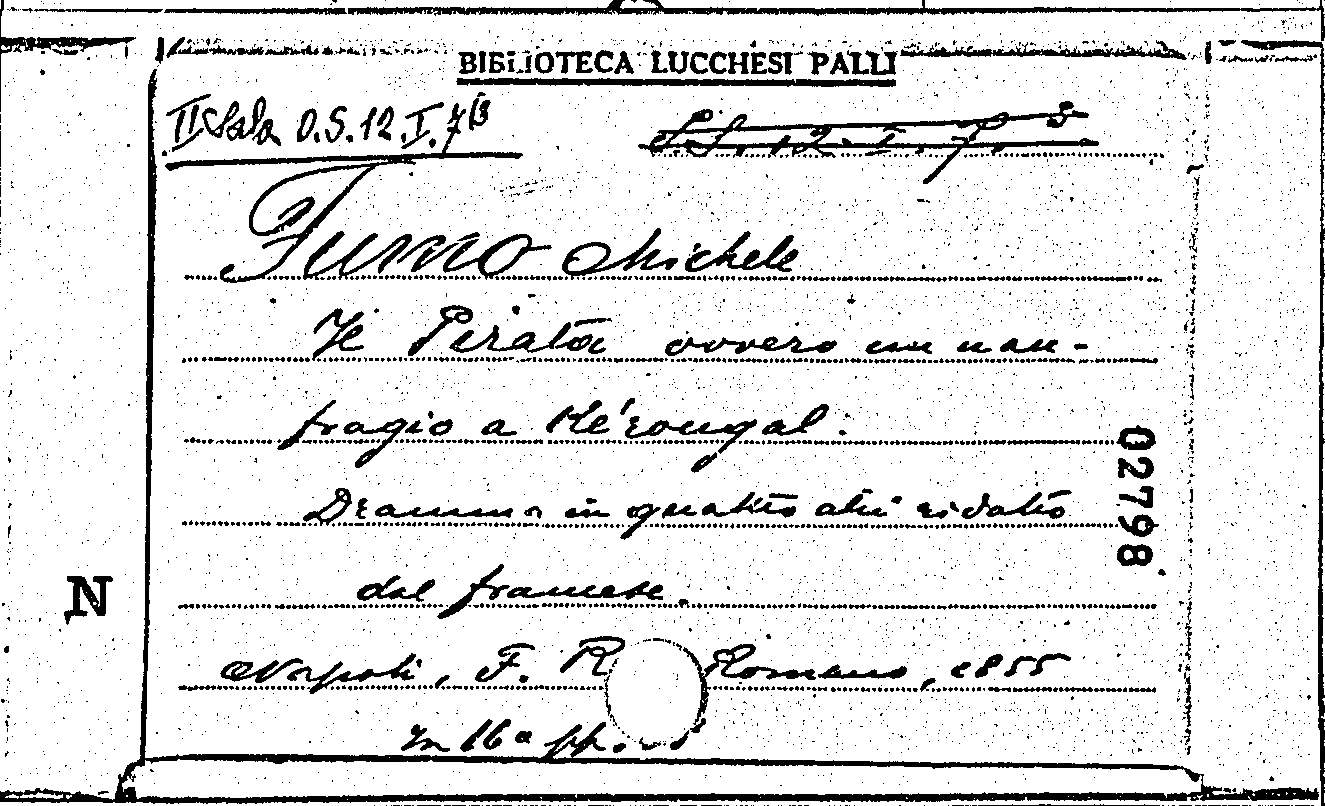 BIBLIOTECA LUCCHESI PALLI
II Sala O.S.12.I.7(3
S.S.12.I.7.3
Fumo Michele
Il Pirata ovvero un nau-
fragio a Kérougal:
Dramma in quattro atti ridotto
dal francese.
Napoli, F. R Romano, 1855
In 16º pp.
02798
N